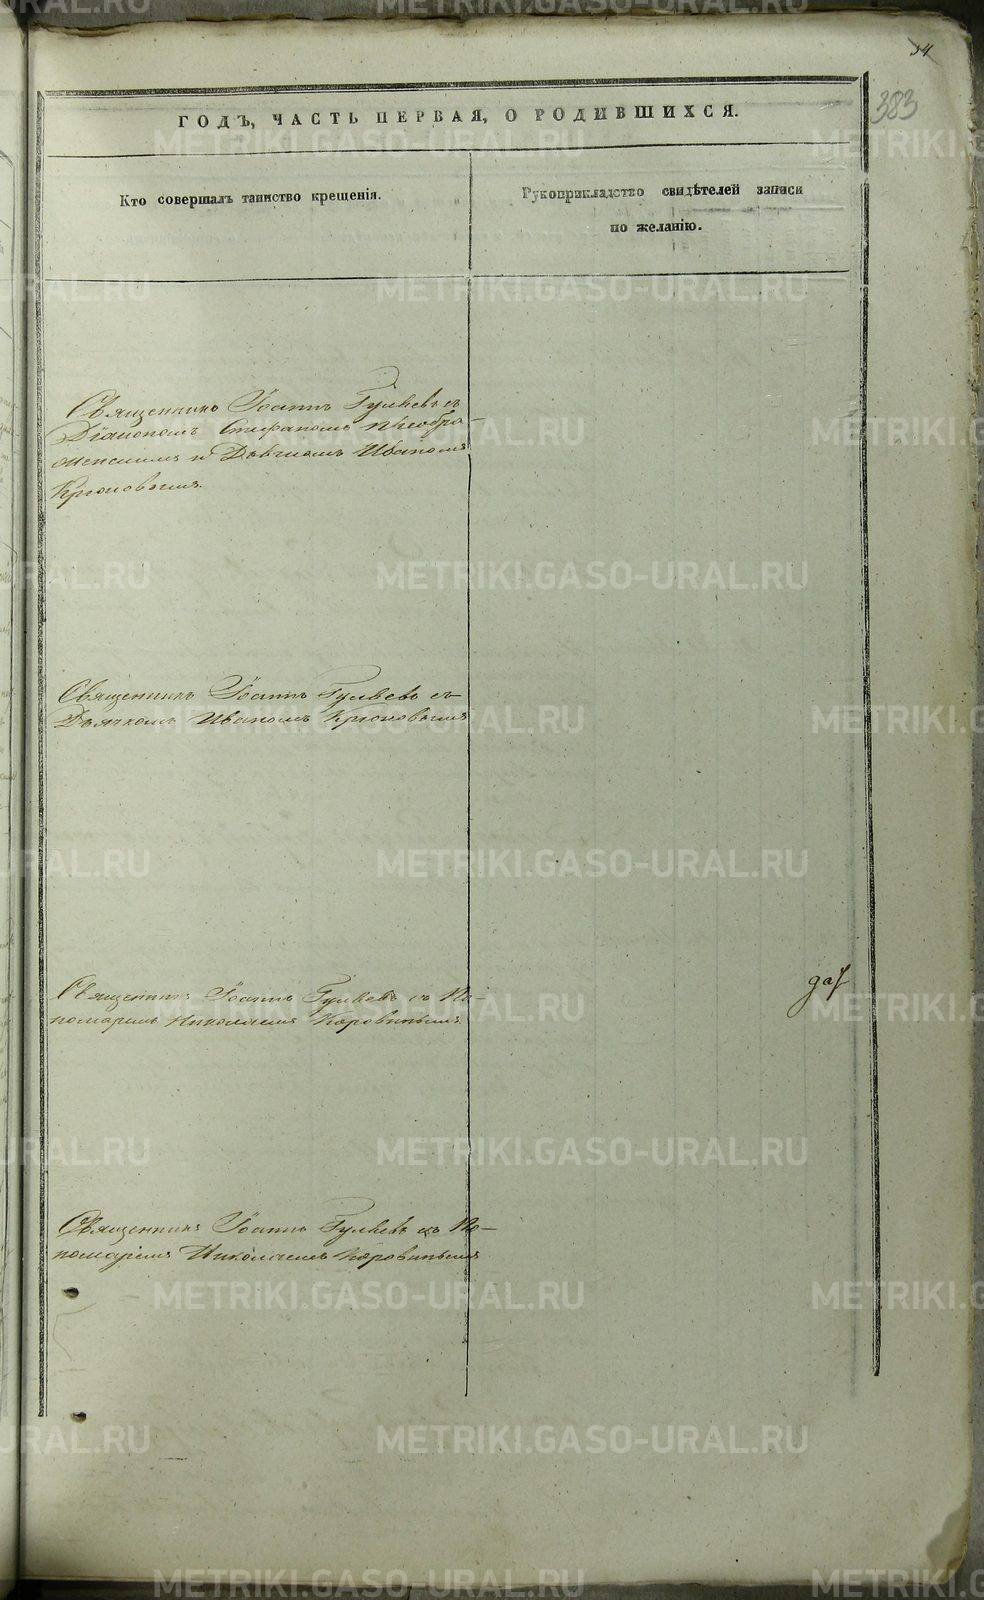 34
383
ГОДЪ, ЧАСТЬ ПЕРВАЯ, О РОДИВШИХСЯ.
Кто совершалъ таинство крещенія.
Рукоприкладство свидѣтелей записи
по желанію.
Священникъ Іоаннъ Гуляевъ съ
Діакономъ Стефаномъ Преобра-
женскимъ и Дьячкомъ Иваномъ
Крюковымъ.
Священникъ Іоаннъ Гуляевъ съ
Дьячкомъ Иваномъ Крюковымъ
Священникъ Іоаннъ Гуляевъ съ По-
номаремъ Николаемъ Коровинымъ.
Священникъ Іоаннъ Гуляевъ съ По-
номаремъ Николаемъ Коровинымъ
METRIKI.GASO-URAL.RU